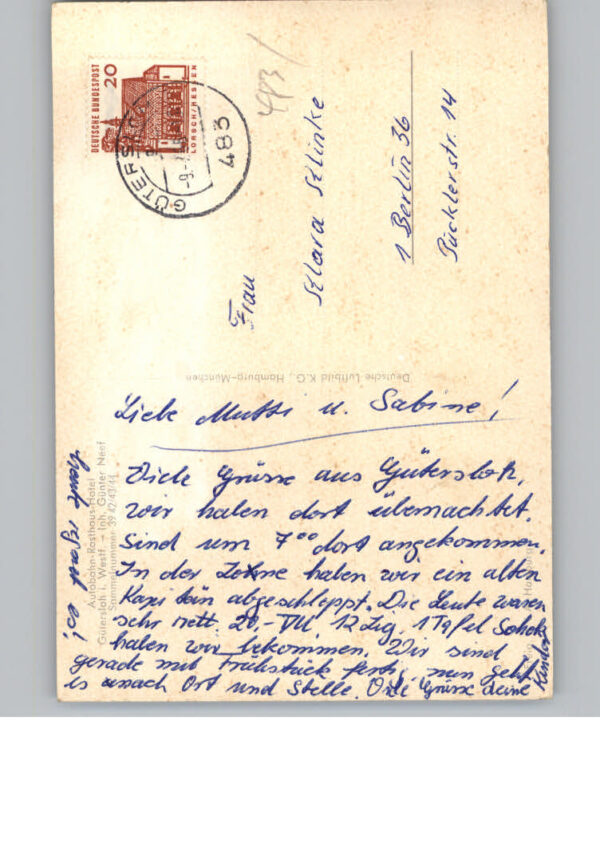 DEUTSCHE BUNDESPOST
20
LORSCH/HESSEN
GÜTERSL
483
-9.-
483
Frau
Klara Klinke
1 Berlin 36
Pücklerstr. 14
Deutsche Luftbild K.G., Hamburg-München
Autobahn-Rasthaus-Hotel
Gütersloh i. Westf. - Inh. Günter Neef
Sammelnummer 39 42/43/44
Liebe Mutti u. Sabine!
Viele Grüsse aus Gütersloh,
wir haben dort übernachtet.
Sind um 7⁰⁰ dort angekommen.
In der Zone haben wir ein alten
Kapitän abgeschleppt. Die Leute waren
sehr nett 20 - DM, 12 Zig, 1 Tafel Schok
haben wir bekommen. Wir sind
gerade mit Frühstück fertig, nun geht
es nach Ort und Stelle. Viele Grüsse deine
Kinder
heute regnet es!